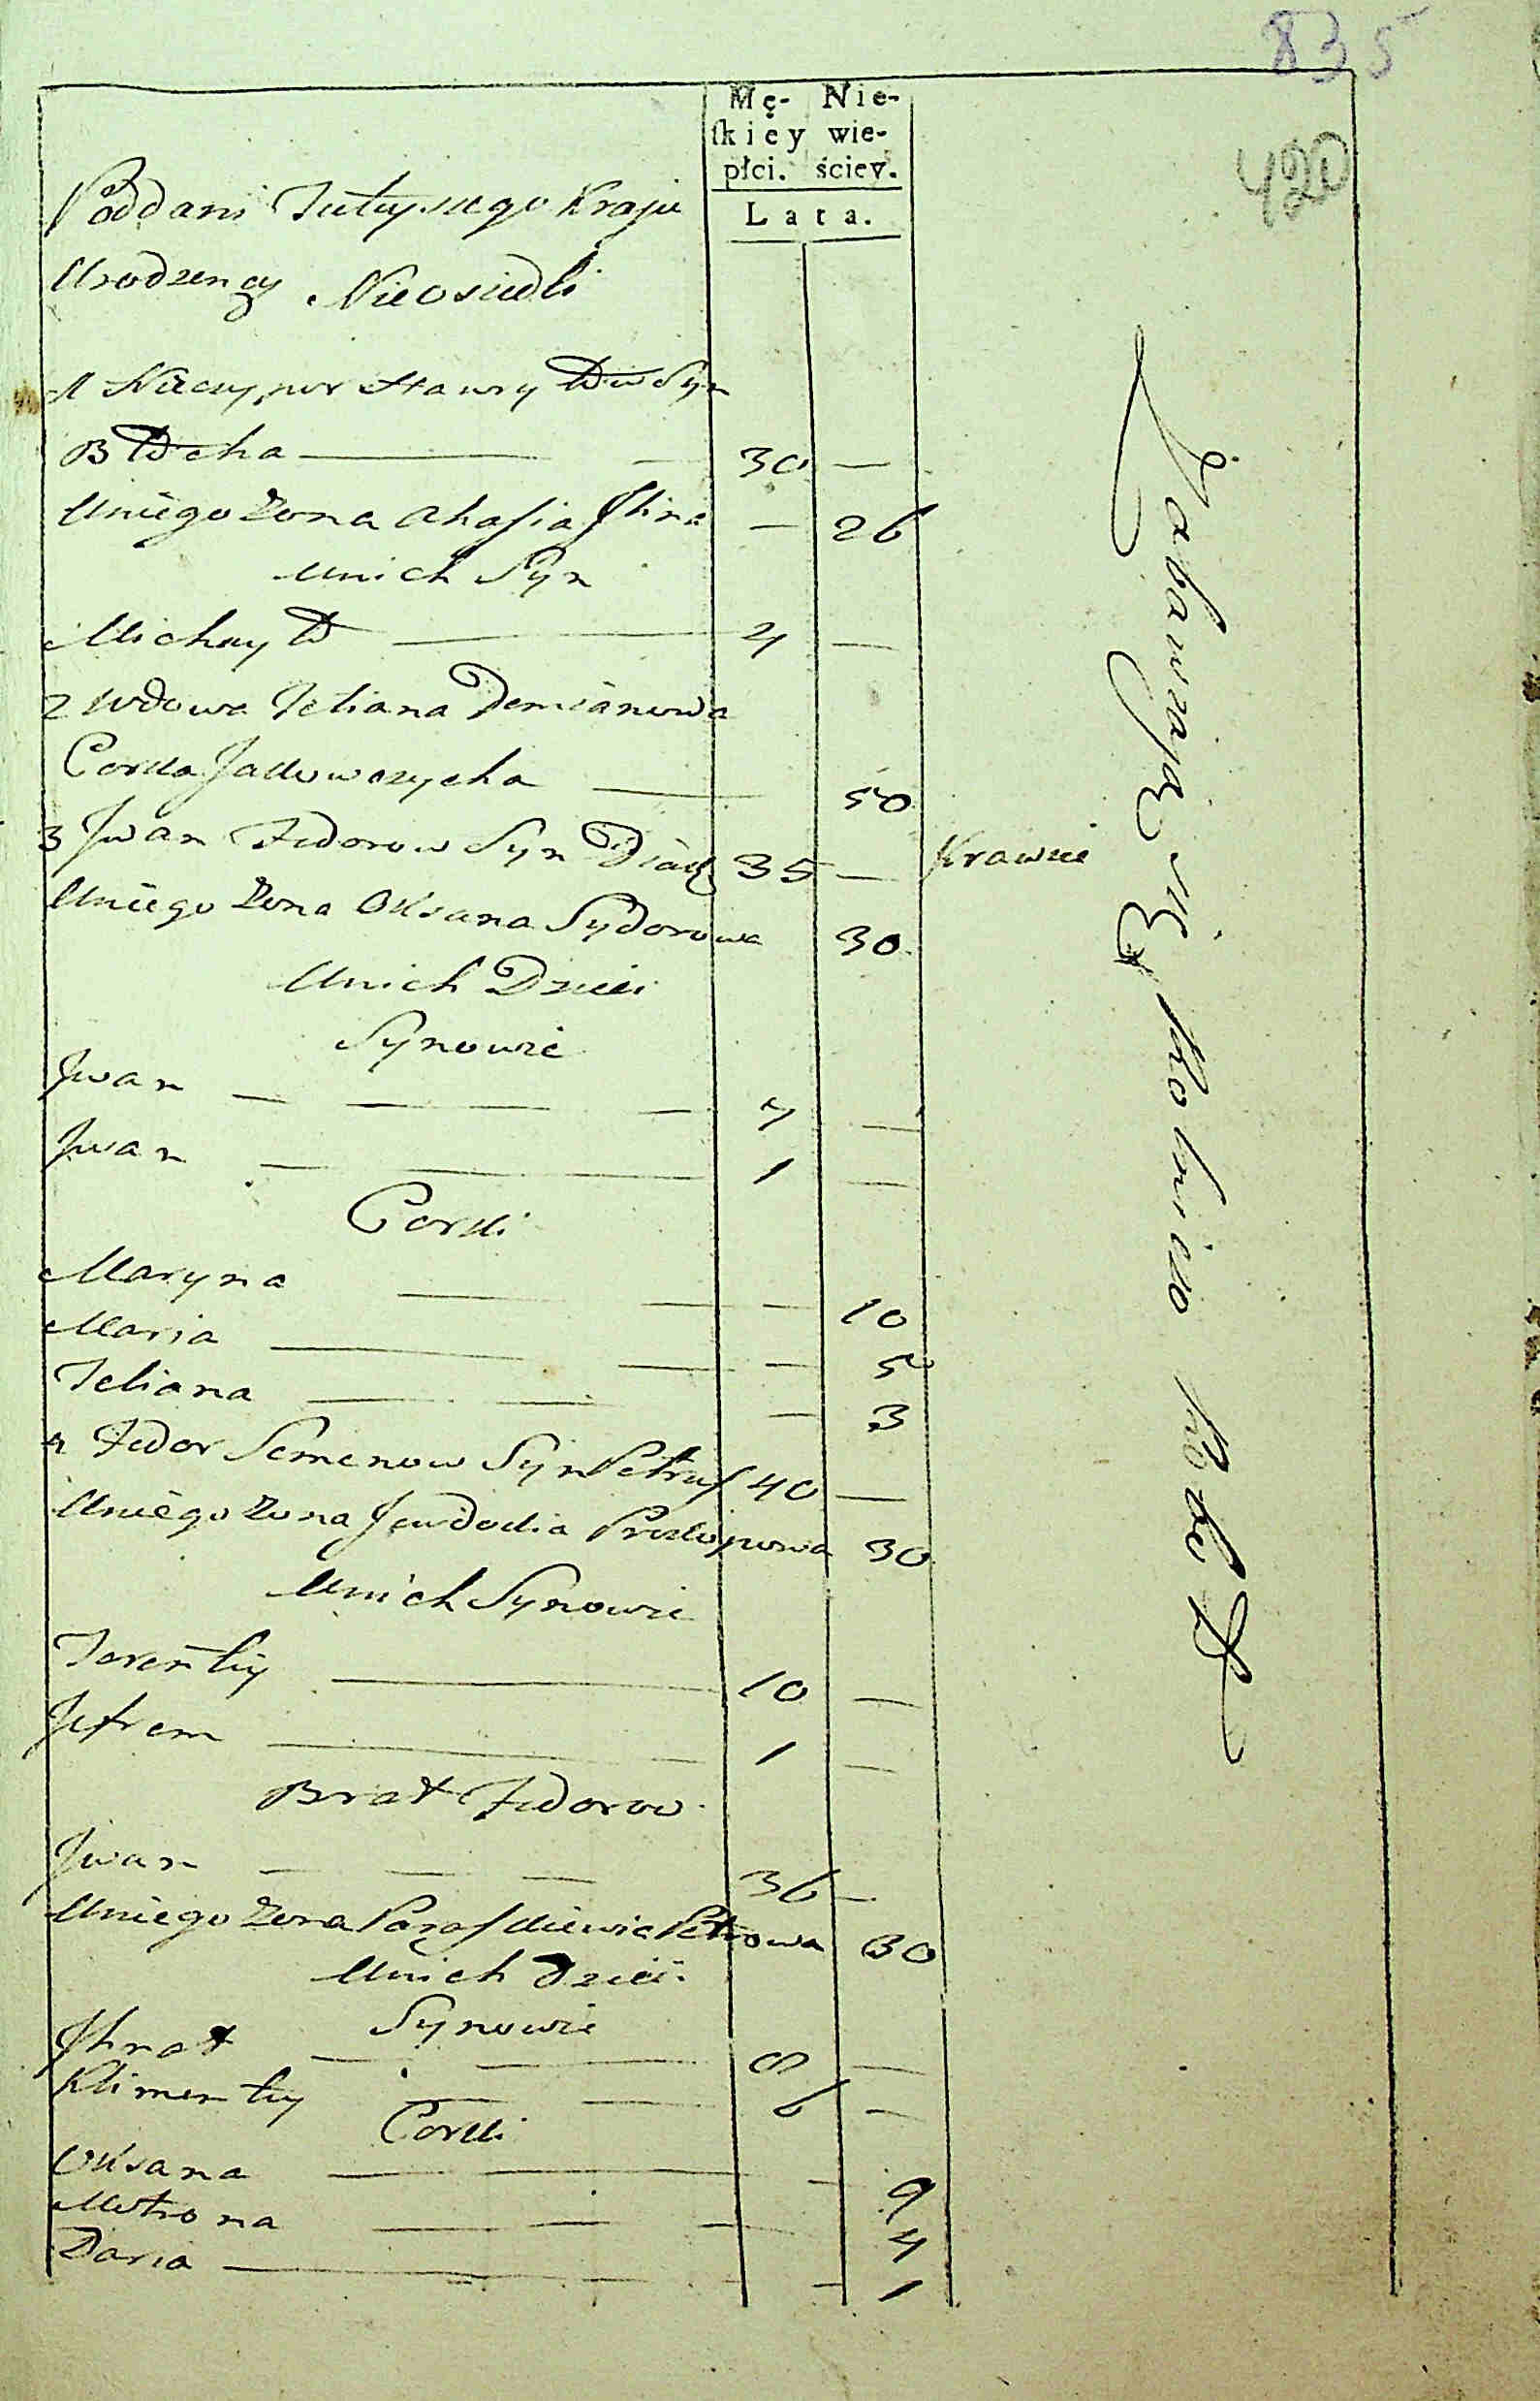 835
420
Mę- Nie-
ſkiey wie-
płci. ściey.
Lata.
Poddani Tutyszego Kraju
Urodzency Nieosiedli
1 Niczypor Hawryłów Syn
Błocha — 30 —
Uniego Zona Ahafia — 26
Unich Syn
Michayło — 4 —
2 Wdowa Tetiana Demianowa
Corka Jakowczycha — 50
3 Iwan Fedorow Syn Diak 35 — Krawiec
Uniego Zona Oksana Sydorowa 30
Unich Dzieci
Synowie
Iwan — — — 7 —
Iwan — — 1 —
Corki
Maryna — — — 10
Maria — — — 5
Tetiana — — — 3
4 Fedor Semenow Syn Petrus 40 —
Uniego Zona Jewdokia Prokopowa 30
Unich Synowie
Terentiy — 10 —
Jefrem — — 1 —
Brat Fedorow
Iwan — — — 36 —
Uniego Zona Paraskiewia Petrowa 30
Unich Dzieci
Synowie
Ihnat — — 8 —
Klimentiy — — 6 —
Corki
Oksana — — — 9
Motrona — — — 4
Daria — — — 1
Zabawiaią się Rolnictwem